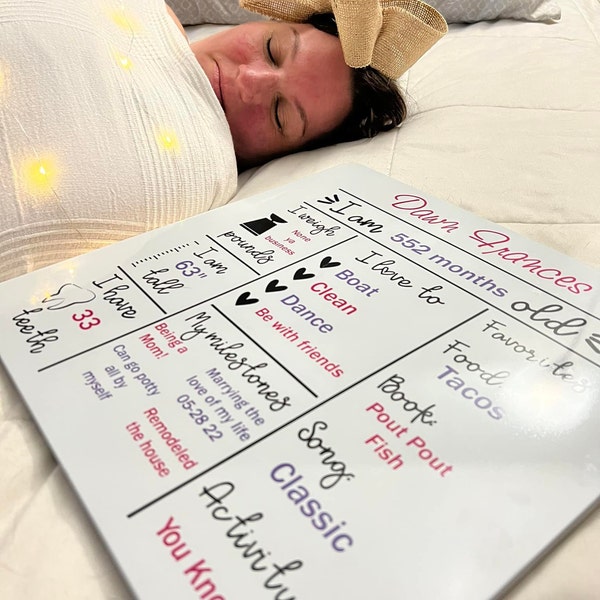 Dawn Frances
I am 552 months old
I weigh
None
ya
business
pounds
I am
63"
tall
I have
33
teeth
I love to
Boat
Clean
Dance
Be with friends
My milestones
Being a
Mom!
Can go potty
all by
myself
Marrying the
love of my life
05-28 22
Remodeled
the house
Favorites
Food:
Tacos
Book:
Pout Pout
Fish
Song:
Classic
Activity
You Kno